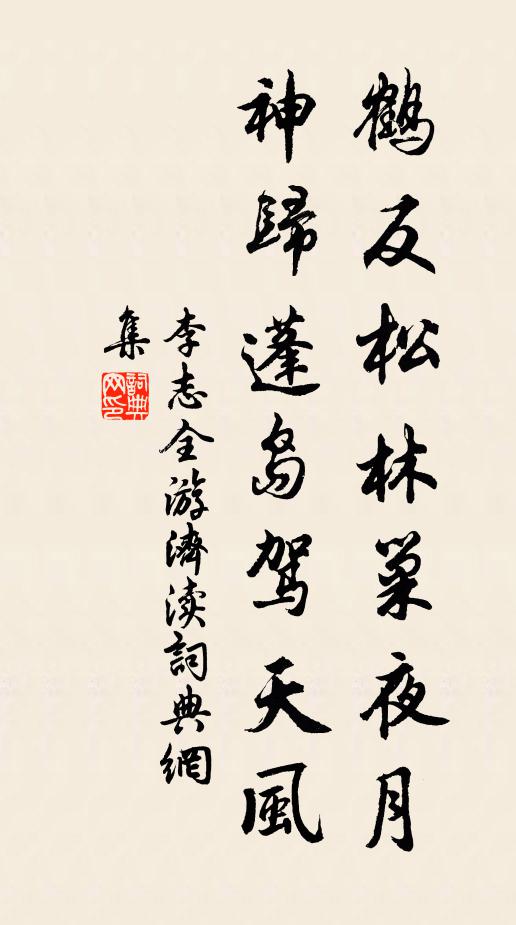 鶴反松林巢夜月
神歸蓬島駕天風
李志全游濟渎詞典網
集
詞典
网印